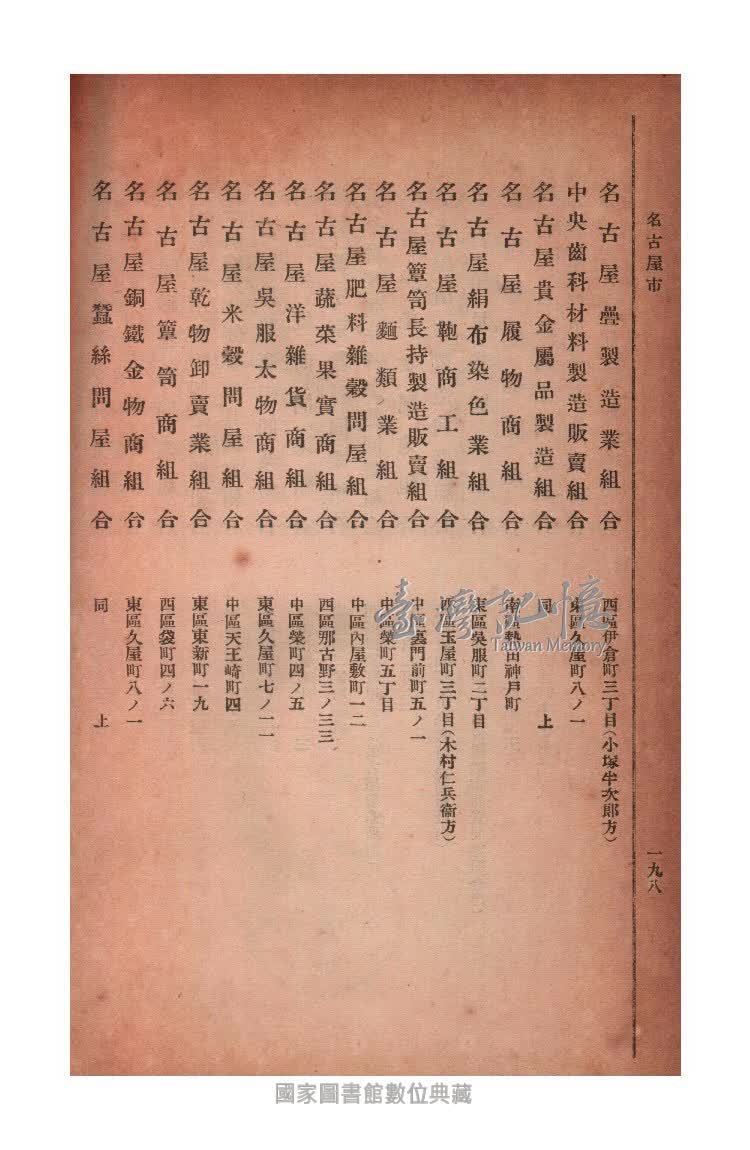 名古屋市
一九八
名古屋疊製造業組合 西區伊倉町三丁目(小塚半次郎方)
中央齒科材料製造販賣組合 東區久屋町八ノ一
名古屋貴金屬品製造組合 同上
名古屋履物商組合 南區熱田神戸町
名古屋絹布染色業組合 東區吳服町二丁目
名古屋鞄商工組合 西區玉屋町三丁目(木村仁兵衞方)
名古屋簞笥長持製造販賣組合 中區裏門前町五ノ一
名古屋麵類業組合 中區榮町五丁目
名古屋肥料雜穀問屋組合 中區內屋敷町一二
名古屋蔬菜果實商組合 西區那古野三ノ三三
名古屋洋雜貨商組合 中區榮町四ノ五
名古屋吳服太物商組合 東區久屋町七ノ一一
名古屋米穀問屋組合 中區天王崎町四
名古屋乾物卸賣業組合 東區東新町一九
名古屋簞笥商組合 西區袋町四ノ六
名古屋銅鐵金物商組合 東區久屋町八ノ一
名古屋蠶絲問屋組合 同上
臺灣記憶
Taiwan Memory
國家圖書館數位典藏